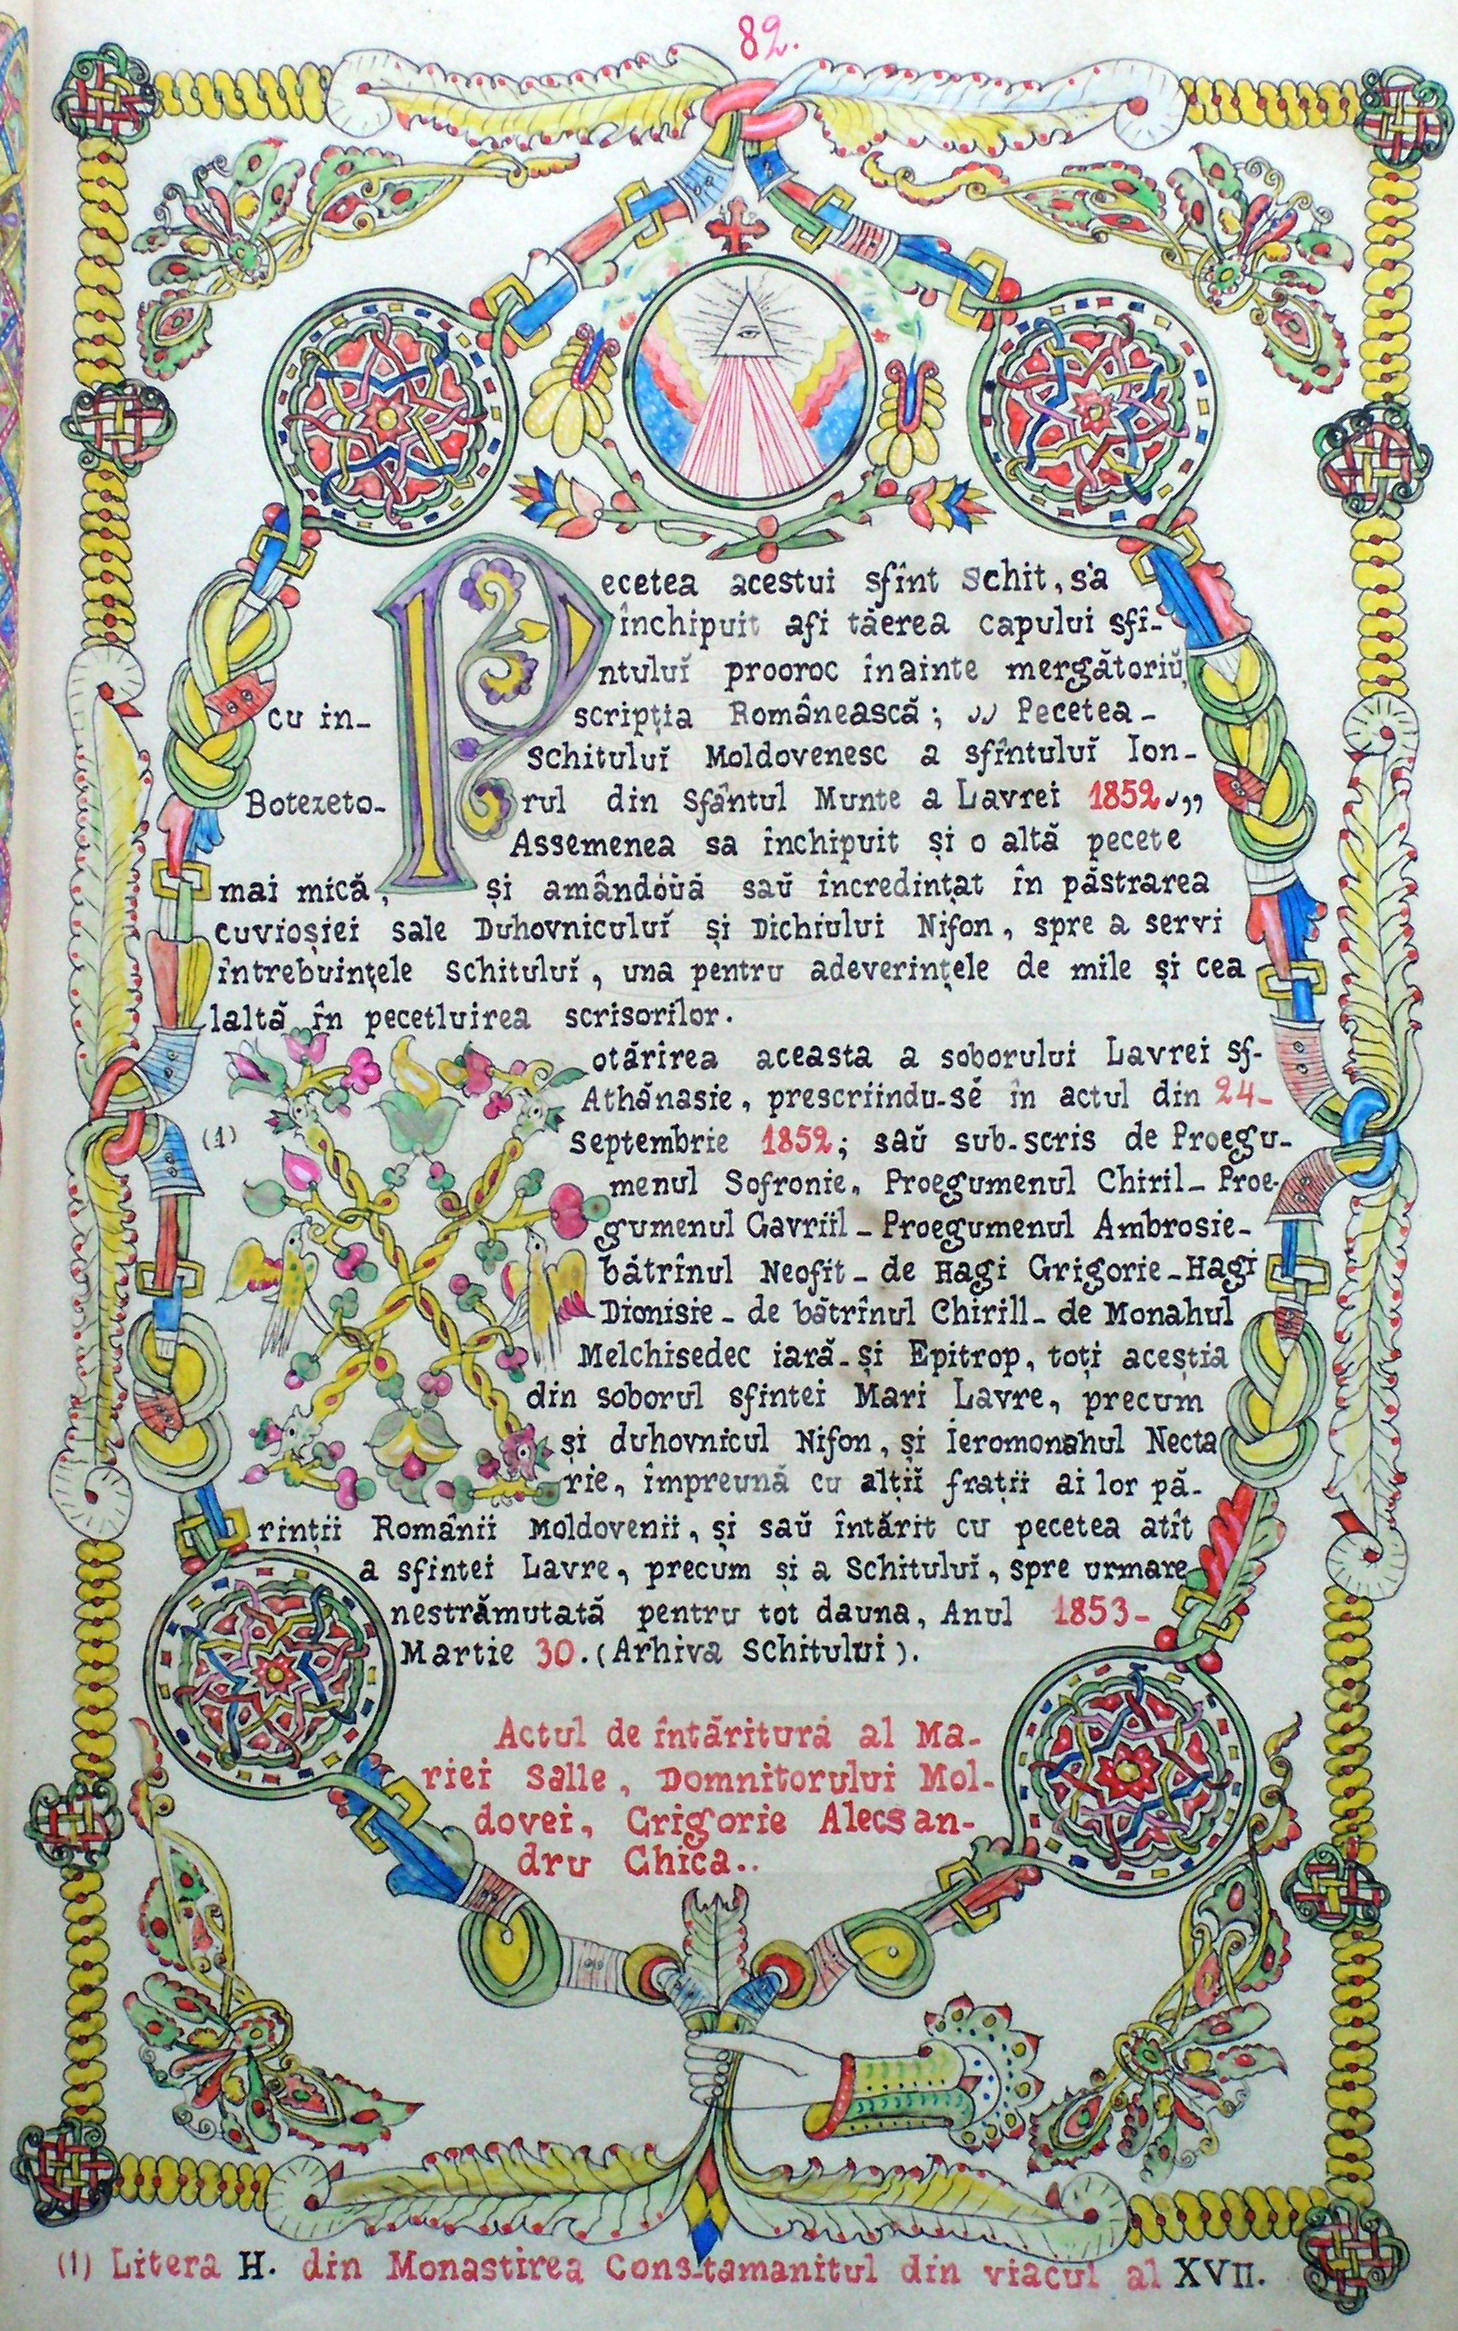 82.
Pecetea acestui sfînt Schit, s'a
închipuit afi tăerea capului sfî-
ntuluĭ prooroc înainte mergătoriŭ,
cu in-scripția Românească; „ Pecetea-
Schituluĭ Moldovenesc a sfîntuluĭ Ion-
Botezeto-rul din Sfântul Munte a Lavrei 1852.„
Assemenea sa închipuit și o altă pecete
mai mică, și amândóuă saŭ încredințat în păstrarea
cuvioșiei sale Duhovniculuĭ și Dichiului Nifon, spre a servi
întrebuințele Schituluĭ, una pentru adeverințele de mile și cea
laltă în pecetluirea scrisorilor.
otărirea aceasta a soborului Lavrei Sf-
Athănasie, prescriindu-sĕ în actul din 24-
(1) Septembrie 1852; saŭ sub-scris de Proegu-
menul Sofronie, Proegumenul Chiril- Proe-
gumenul Gavriil- Proegumenul Ambrosie-
bătrînul Neofit- de Hagi Grigorie- Hagi
Dionisie- de bătrînul Chirill- de Monahul
Melchisedec iară-și Epitrop, toți aceștia
din soborul sfintei Mari Lavre, precum
și duhovnicul Nifon, și Ieromonahul Necta
rie, împreună cu alțiĭ frații ai lor pă-
rinții Românii Moldovenii, și saŭ întărit cu pecetea atît
a sfintei Lavre, precum și a Schituluĭ, spre urmare
nestrămutată pentru tot dauna, Anul 1853-
Martie 30. (Arhiva Schitului).
Actul de întăritură al Ma-
riei Salle, Domnitorului Mol-
dovei, Grigorie Alecsan-
dru Ghica..
(1) Litera H. din Monastirea Cons-tamanitul din viacul al XVII.